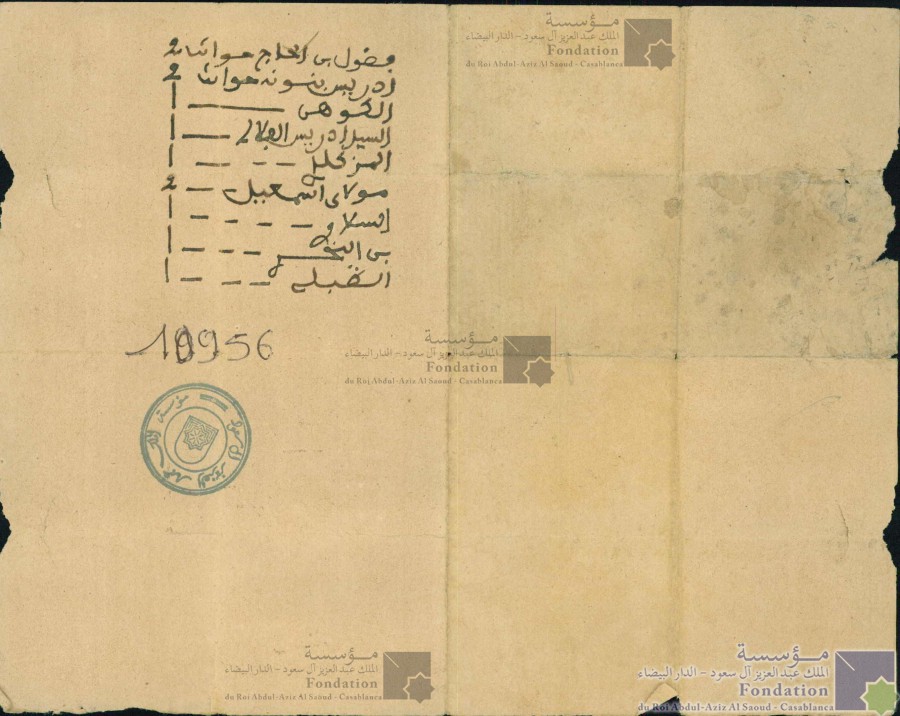 مؤسسة
الملك عبد العزيز آل سعود - الدار البيضاء
Fondation
du Roi Abdul-Aziz Al Saoud - Casablanca
بضول بن الحاج حوانت 2
ادريس بنسونه حوانت 2
الكوهن 1
السيد ادريس 1
1
مولاي اسمعيل 2
السلاوي 1
بن 1
1
10956
مؤسسة
الملك عبد العزيز آل سعود - الدار البيضاء
Fondation
du Roi Abdul-Aziz Al Saoud - Casablanca
مؤسسة الملك عبد العزيز آل سعود
مؤسسة
الملك عبد العزيز آل سعود - الدار البيضاء
Fondation
du Roi Abdul-Aziz Al Saoud - Casablanca
مؤسسة
الملك عبد العزيز آل سعود - الدار البيضاء
Fondation
du Roi Abdul-Aziz Al Saoud - Casablanca